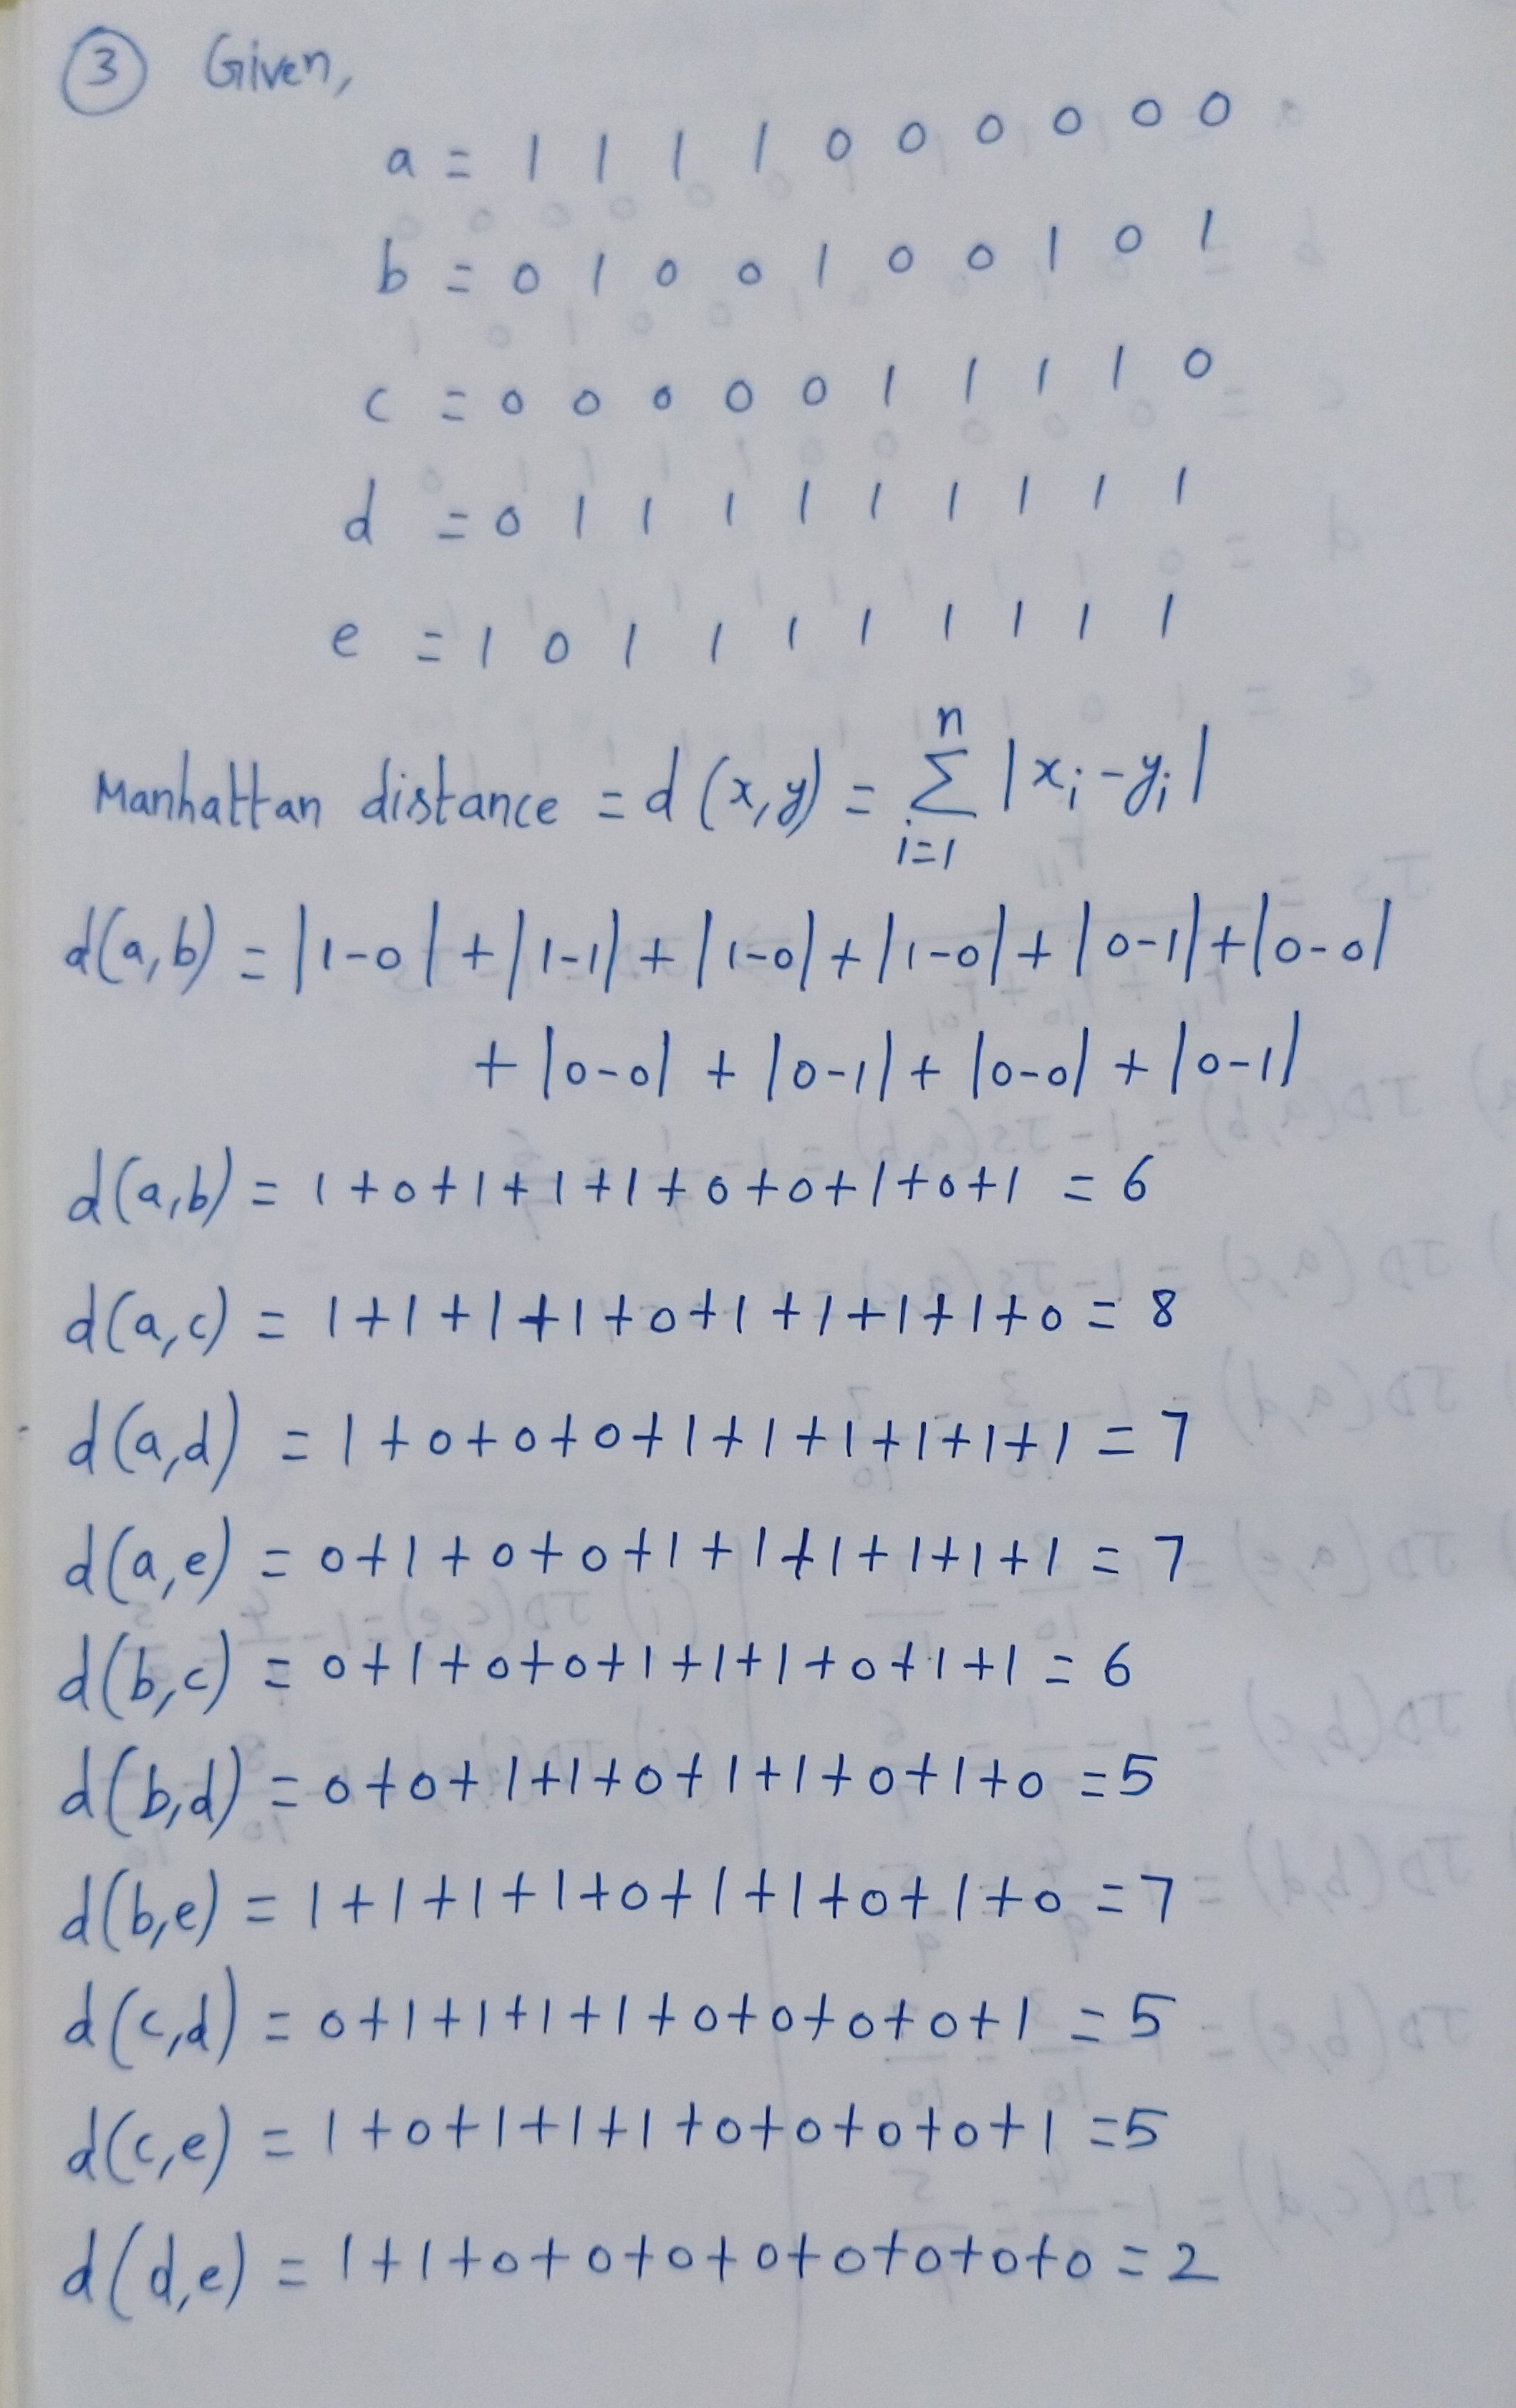 ③ Given,
a = 1 1 1 1 0 0 0 0 0 0
b = 0 1 0 0 1 0 0 1 0 1
c = 0 0 0 0 0 1 1 1 1 0
d = 0 1 1 1 1 1 1 1 1 1
e = 1 0 1 1 1 1 1 1 1 1
Manhattan distance = d(x,y) = \sum_{i=1}^{n} |x_i - y_i|
d(a,b) = |1-0| + |1-1| + |1-0| + |1-0| + |0-1| + |0-0|
+ |0-0| + |0-1| + |0-0| + |0-1|
d(a,b) = 1+0+1+1+1+0+0+1+0+1 = 6
d(a,c) = 1+1+1+1+0+1+1+1+1+0 = 8
d(a,d) = 1+0+0+0+1+1+1+1+1+1 = 7
d(a,e) = 0+1+0+0+1+1+1+1+1+1 = 7
d(b,c) = 0+1+0+0+1+1+1+0+1+1 = 6
d(b,d) = 0+0+1+1+0+1+1+0+1+0 = 5
d(b,e) = 1+1+1+1+0+1+1+0+1+0 = 7
d(c,d) = 0+1+1+1+1+0+0+0+0+1 = 5
d(c,e) = 1+0+1+1+1+0+0+0+0+1 = 5
d(d,e) = 1+1+0+0+0+0+0+0+0+0 = 2